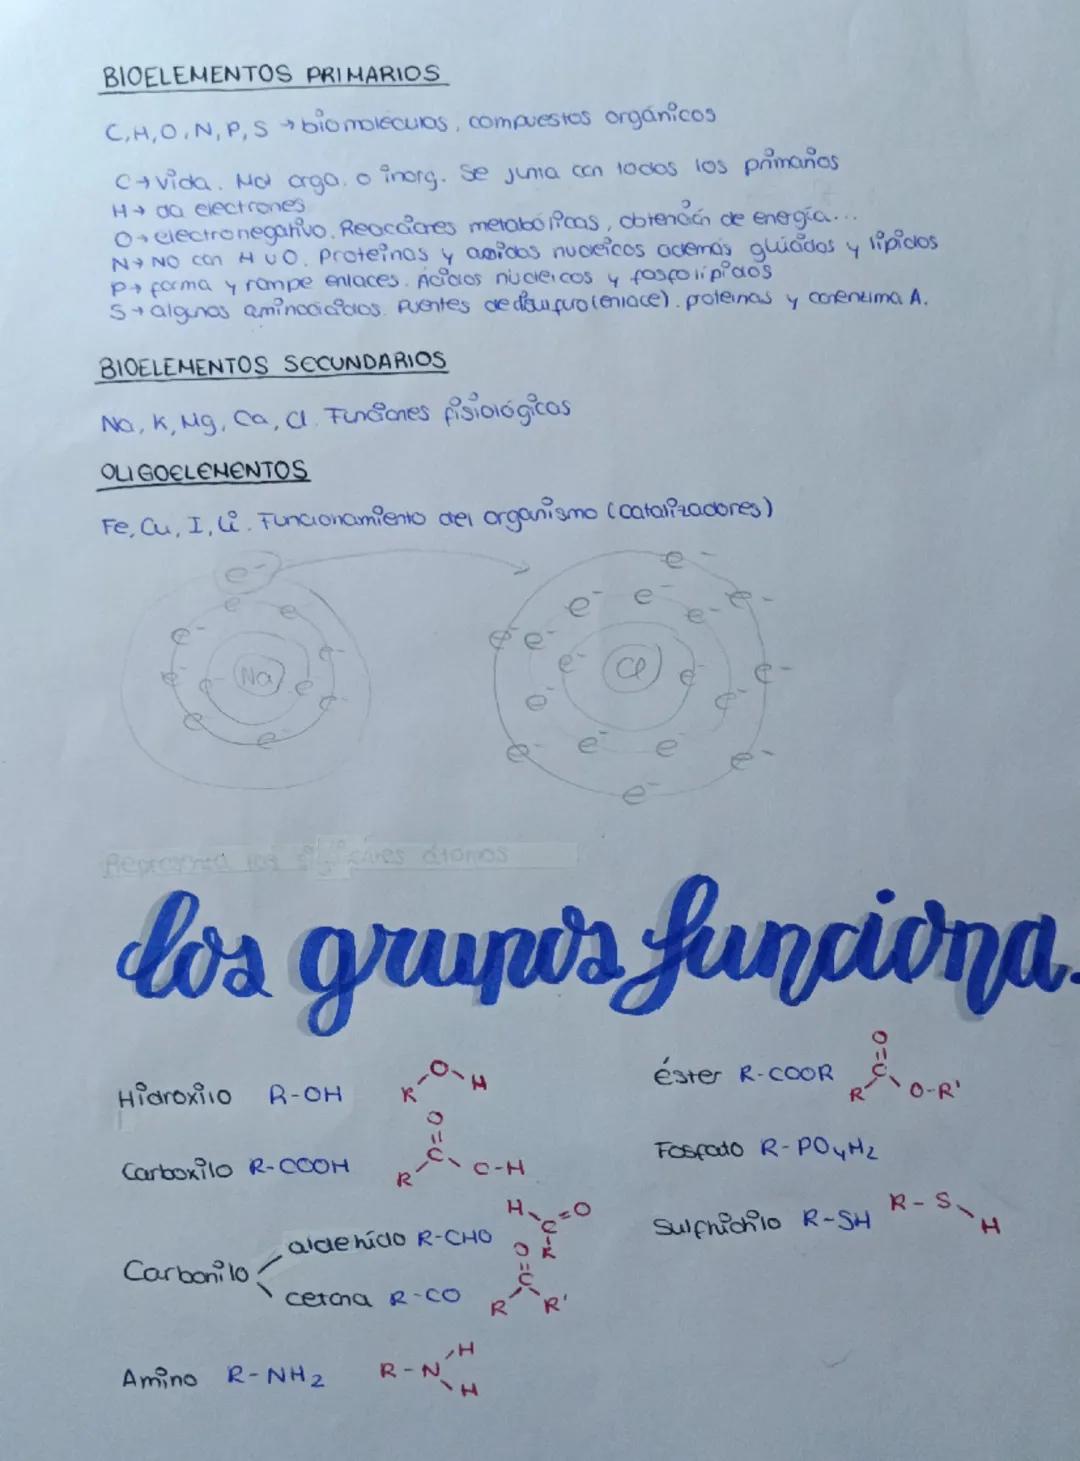 BIOELEMENTOS PRIMARIOS
C, H, O, N, P, S → biomoleculas, compuestos orgánicos
C → vida. Mat orga. o inorg. Se junta con todos los primarios
H → da electrones
O → electronegativo. Reacciones metabólicas, obtención de energía...
N → NO con H u O. Proteinas y acidos nucleicos además glúcidos y lípidos
P → forma y rompe enlaces. Ácidos núcleicos y fosfolípidos
S → algunos aminoácidos. Puentes de disulfuro (enlace). proteinas y coenzima A.
BIOELEMENTOS SECUNDARIOS
Na, K, Mg, Ca, Cl. Funciones fisiológicas
OLIGOELEMENTOS
Fe, Cu, I, Li. Funcionamiento del organismo (catalizadores)
e-
e- e- e- e- e- e- e- e- Na e- e-
e- e- e- e- e- e- e- e- e- Cl e- e- e- e- e- e- e- e-
Representa los siguientes átomos
los grupos funciona.
Hidroxilo R-OH R O H
Carboxilo R-COOH R C O O-H
Carbonilo
aldehído R-CHO H C=O R
cetona R-CO R C O R'
Amino R-NH2 R-N H H
éster R-COOR R C O O-R'
Fosfato R-PO4H2
Sulfhidrilo R-SH R-S H